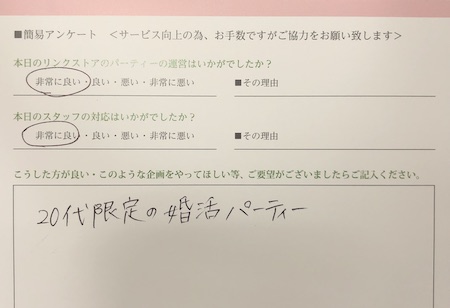 ■簡易アンケート　＜サービス向上の為、お手数ですがご協力をお願い致します＞
本日のリンクストアのパーティーの運営はいかがでしたか？
非常に良い・良い・悪い・非常に悪い　■その理由
本日のスタッフの対応はいかがでしたか？
非常に良い・良い・悪い・非常に悪い　■その理由
こうした方が良い・このような企画をやってほしい等、ご要望がございましたらご記入ください。
20代限定の婚活パーティー